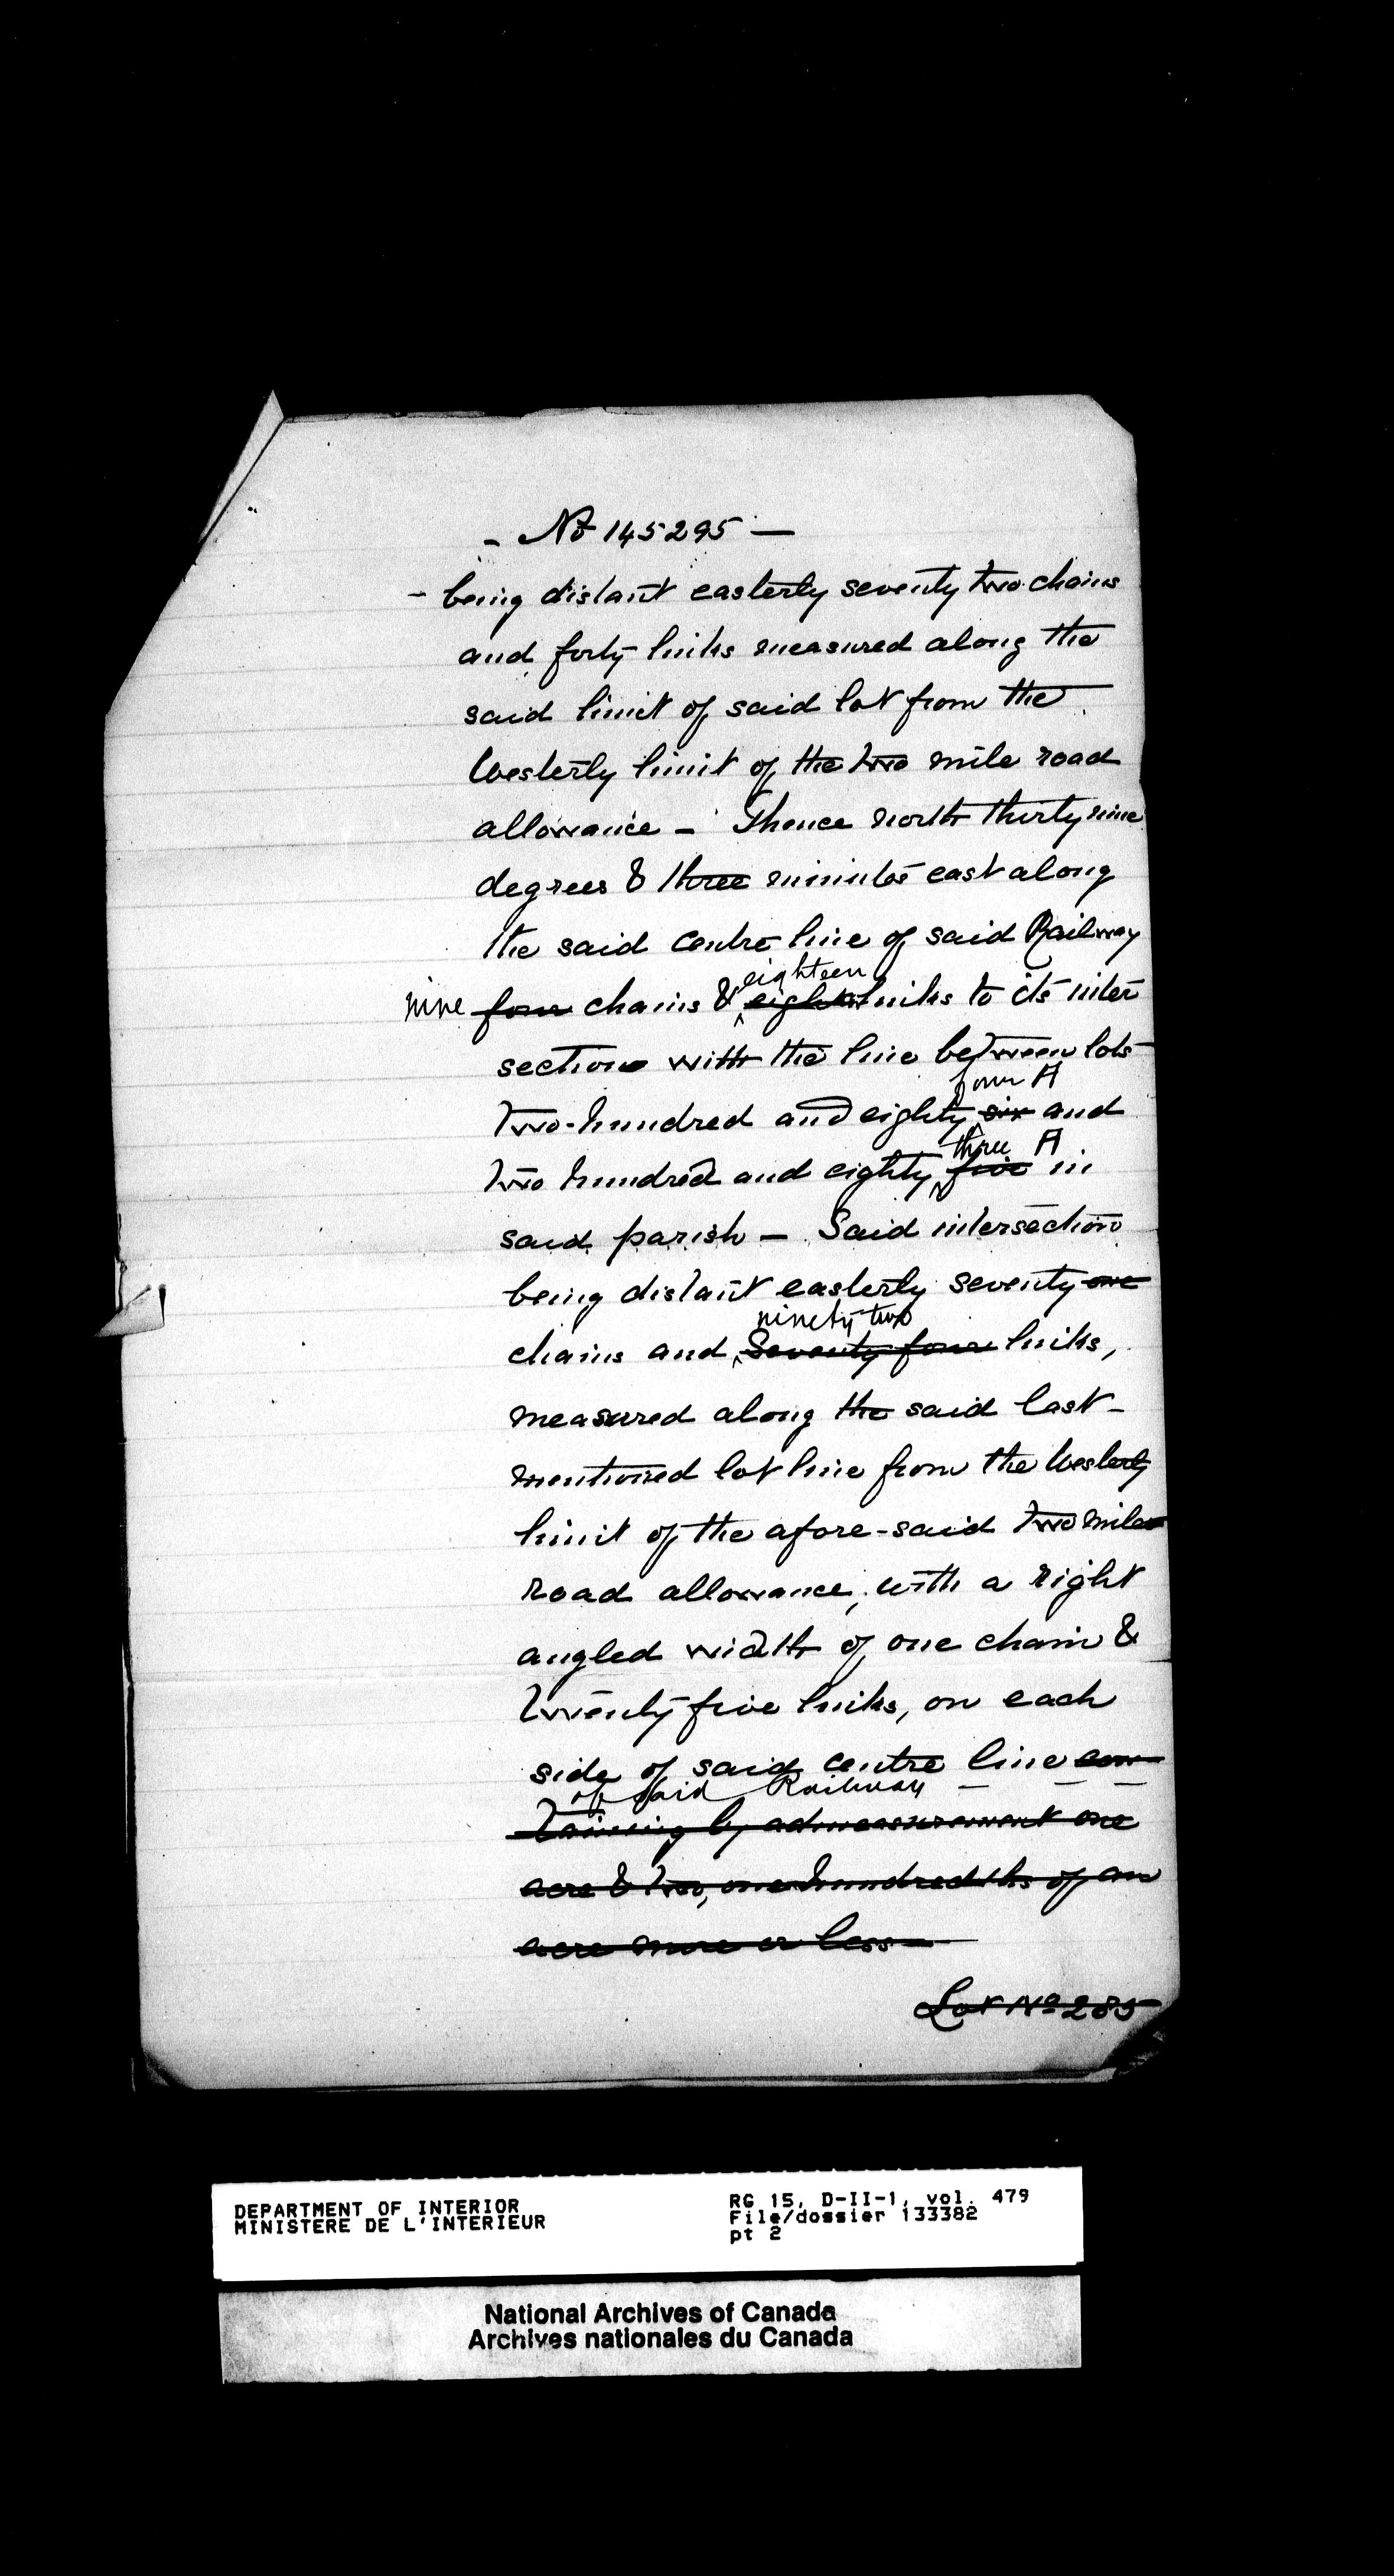 - No 145295 —
- being distant easterly seventy two chains
and forty links measured along the
said limit of said lot from the
Westerly limit of the two mile road
allowance - Thence north thirty nine
degrees & three minutes east along
the said centre line of said Railway
eighteen
nine four chains & eight links to its inter
section with the line between lots
four A
two-hundred and eighty six and
three A
two hundred and eighty five in
said parish - Said intersection
being distant easterly seventy one
ninety two
chains and Seventy four links,
measured along the said last-
mentioned lot line from the Westerly
limit of the afore-said two mile
road allowance, with a right
angled width of one chain &
twenty five links, on each
side of said centre line con-
of said Railway - - -
taining by admeasurement one
acre & two, one hundredths of an
acre more or less —
Lot No 285
DEPARTMENT OF INTERIOR
MINISTERE DE L'INTERIEUR
RG 15, D-II-1, vol. 479
File/dossier 133382
pt 2
National Archives of Canada
Archives nationales du Canada